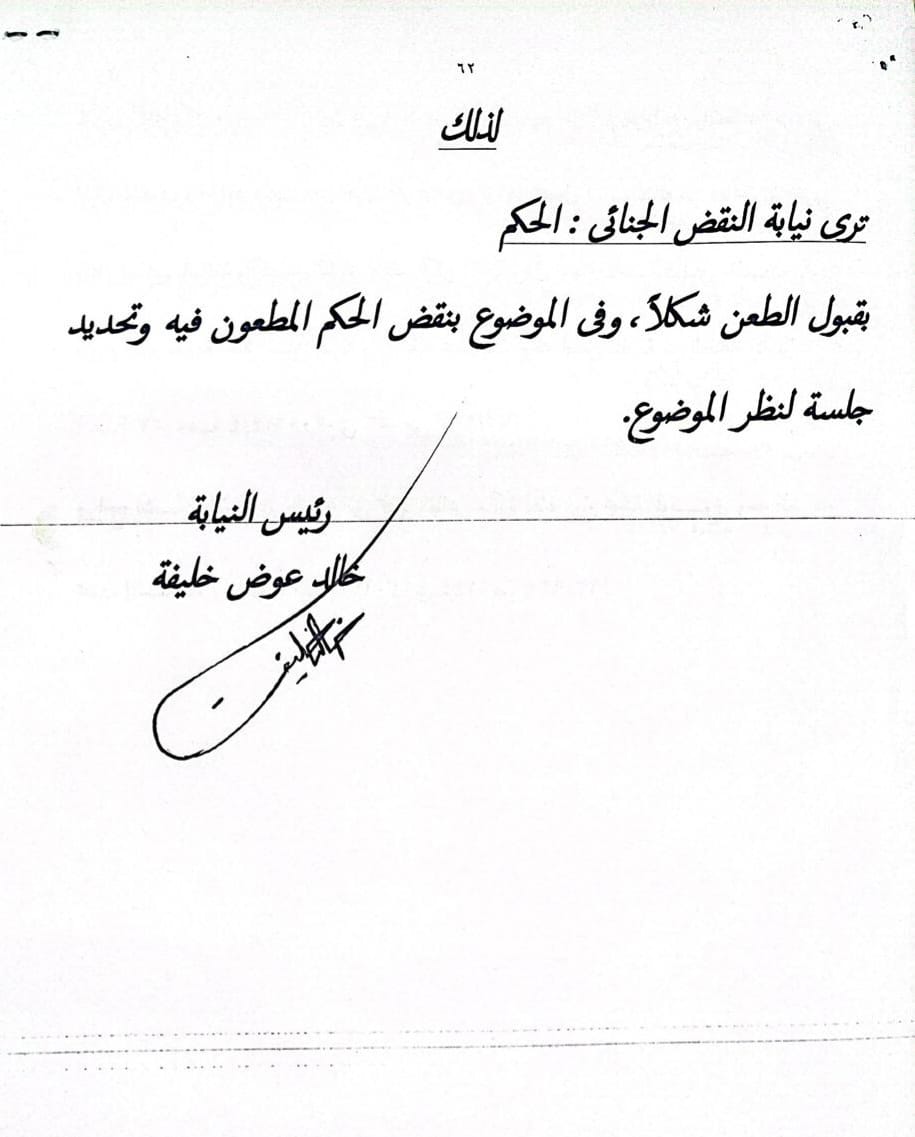 ٦٢
لذلك
ترى نيابة النقض الجنائى : الحكم
بقبول الطعن شكلاً، وفى الموضوع بنقض الحكم المطعون فيه وتحديد
جلسة لنظر الموضوع.
رئيس النيابة
خالد عوض خليفة